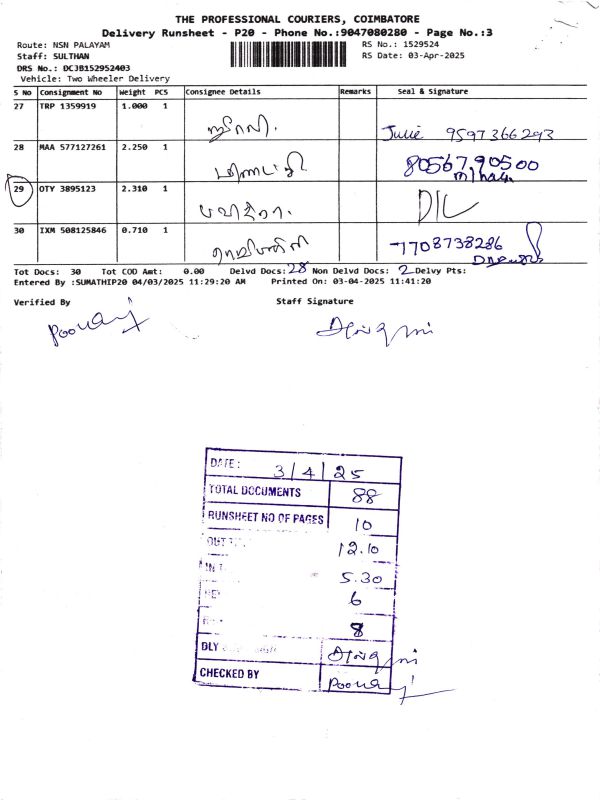 THE PROFESSIONAL COURIERS, COIMBATORE
Delivery Runsheet - P20 - Phone No.:9047080280 - Page No.:3
Route: NSN PALAYAM
RS No.: 1529524
Staff: SULTHAN
RS Date: 03-Apr-2025
DRS No.: DC3B152952403
Vehicle: Two Wheeler Delivery
S No Consignment No Weight PCS Consignee Details Remarks Seal & Signature
27 TRP 1359919 1.000 1
Julie 9597366293
28 MAA 577127261 2.250 1
80567,90500
29 OTY 3895123 2.310 1
30 IXM 508125846 0.710 1
7708738286
Tot Docs: 30 Tot COD Amt: 0.00 Delvd Docs: 28 Non Delvd Docs: 2 Delvy Pts:
Entered By :SUMATHIP20 04/03/2025 11:29:20 AM Printed On: 03-04-2025 11:41:20
Verified By Staff Signature
DATE: 3/4/25
TOTAL DOCUMENTS 88
RUNSHEET NO OF PAGES 10
OUT 12.10
IN 5.30
6
8
DLY
CHECKED BY